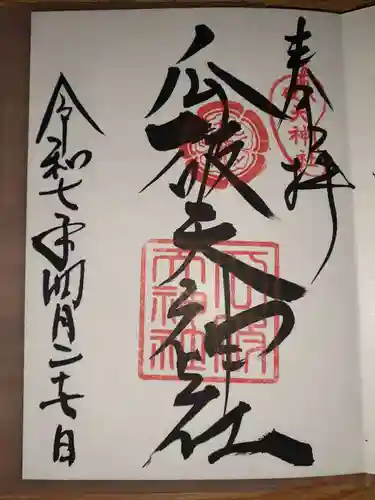 奉拝
瓜破天神社
令和七年四月二十七日
瓜破
天神社